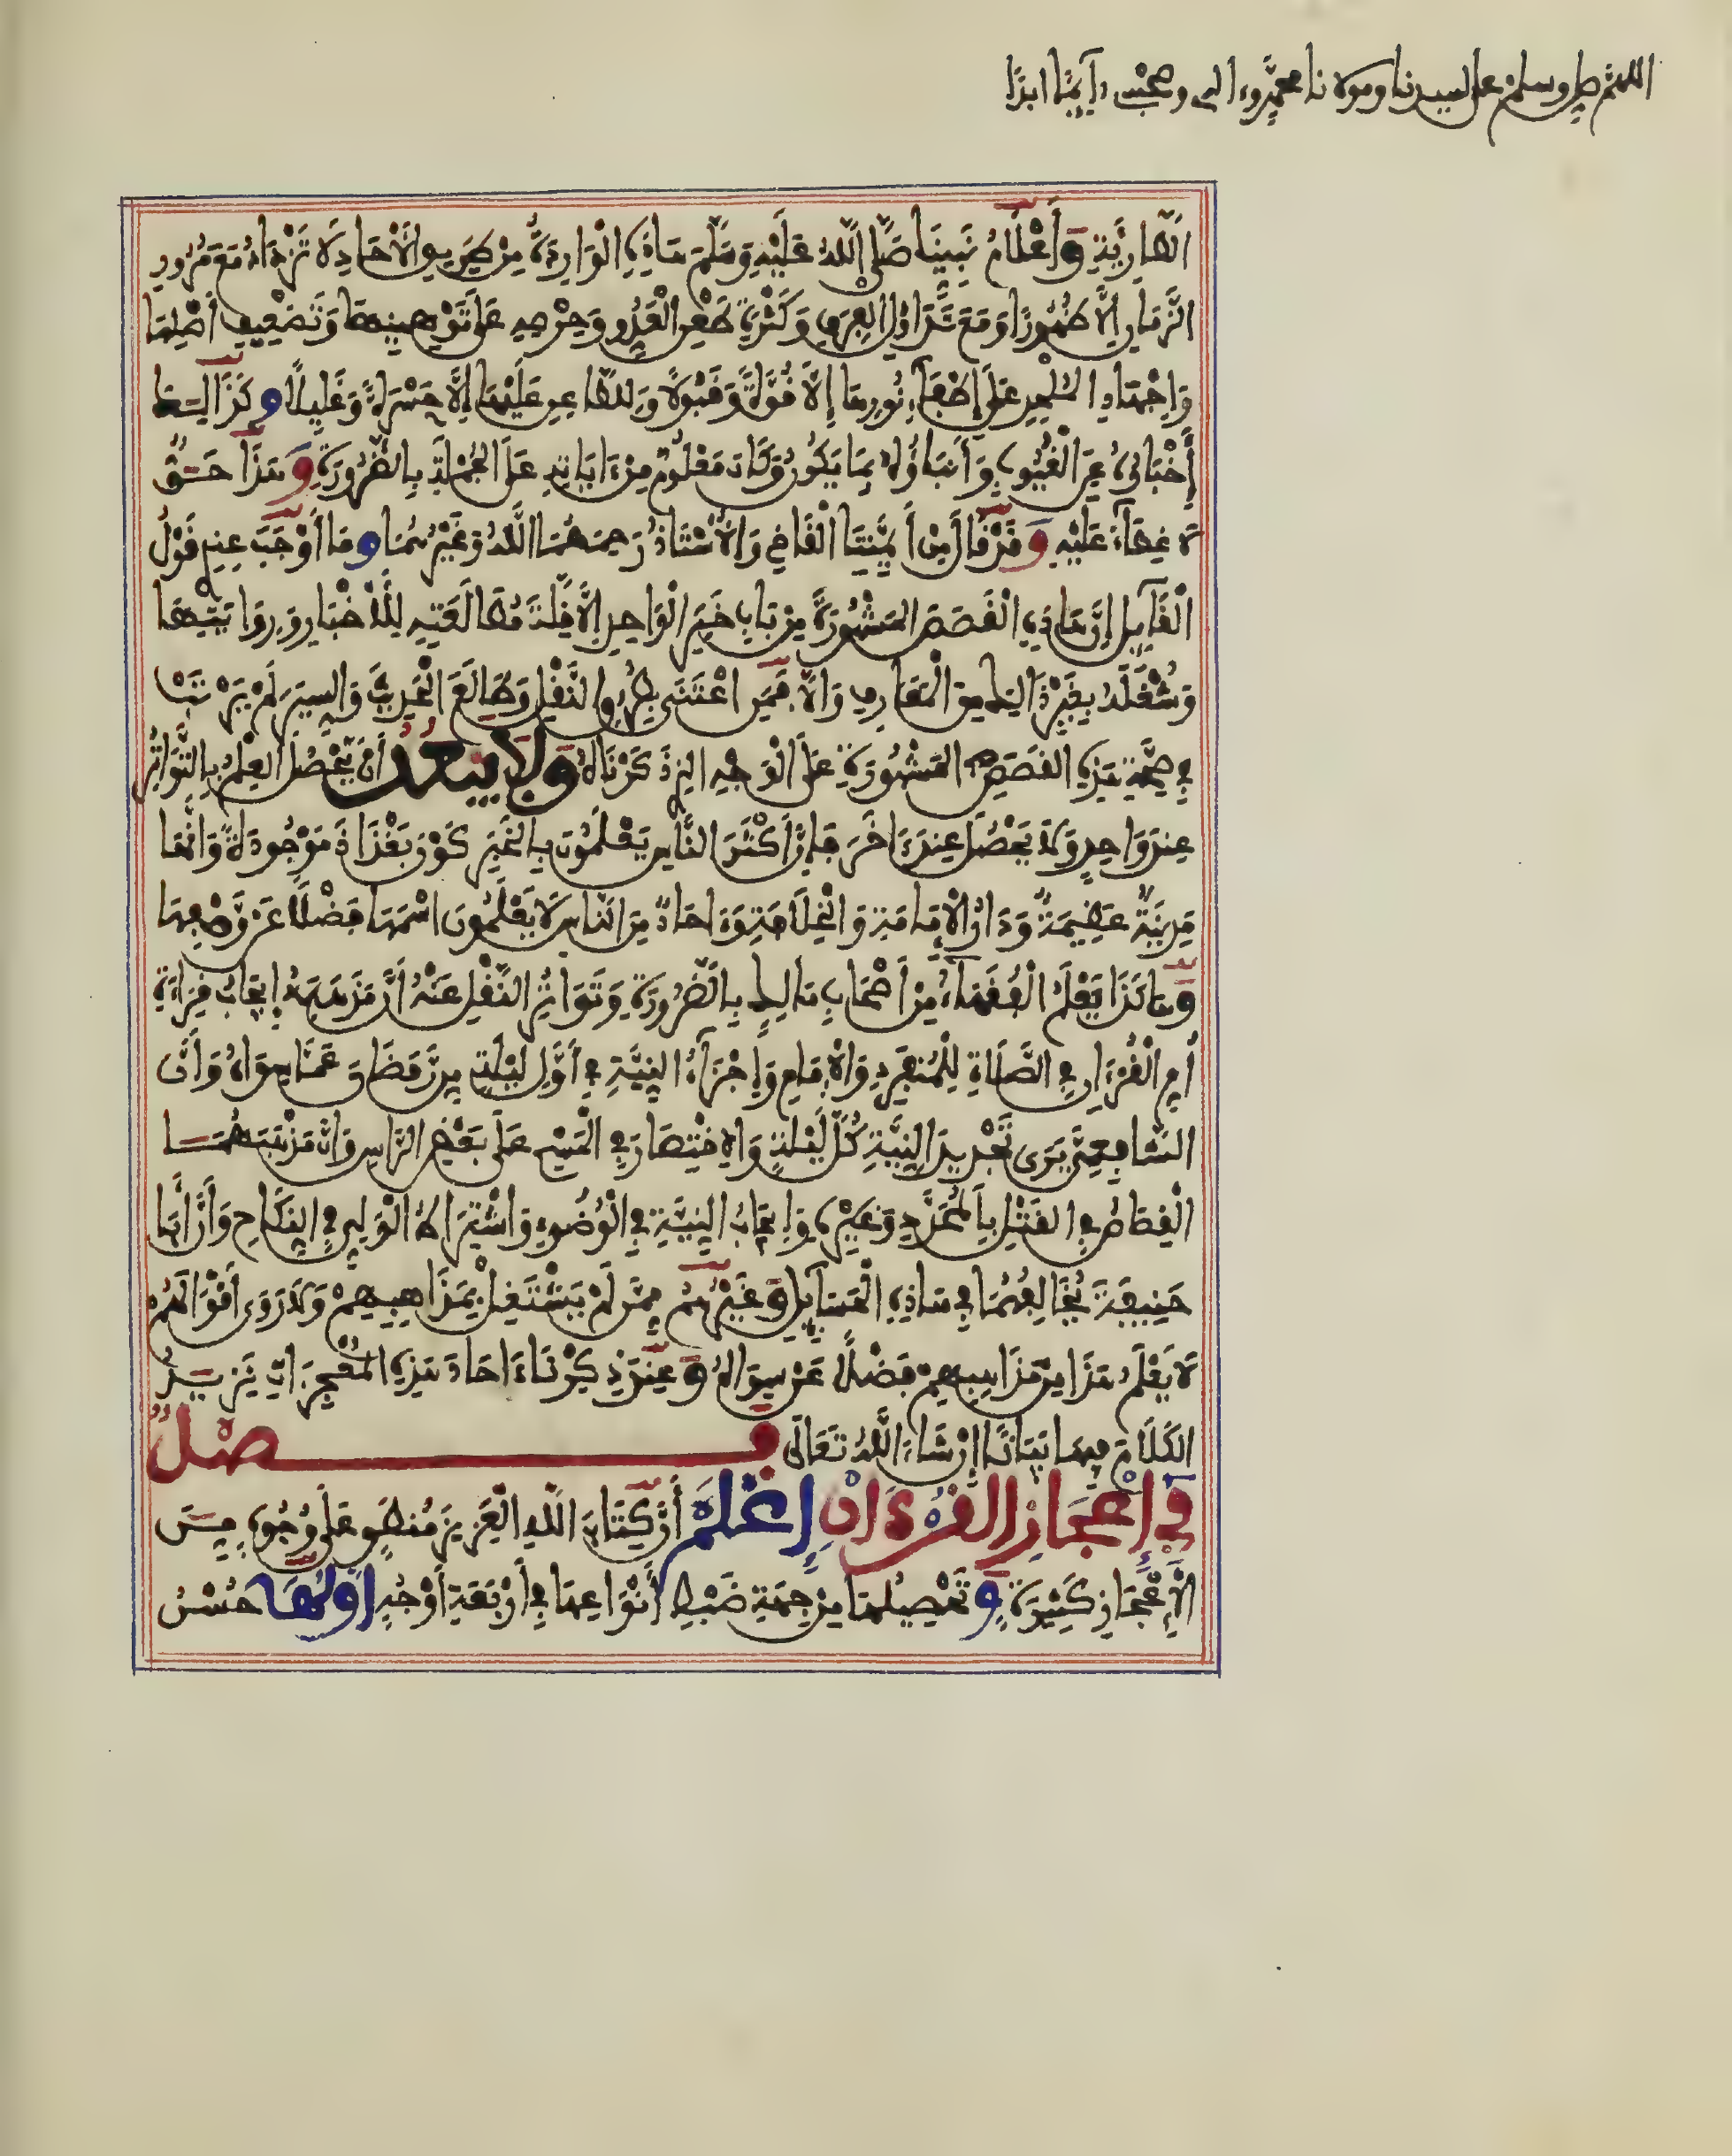 اللهم صل وسلم على سيدنا ومولانا محمد وءاله وصحبه دايما ابدا
الطارية وأعلام نبينا صلى الله عليه وسلم هاذه الواردة من طريق الأحاد لا تزداد مع مرور
الزمان إلا ظهورا ومع تداول الفرق وكثرة طعن العدو وحرصه على توهينها وتضعيف أصلها
واجتهاد الملحد على إطفاء نورها إلا قوة وقبولا وللطاعن عليها إلا حسرة وغليلا وكذالك
إخباره عن الغيوب وأنباؤه بما يكون وكان معلوم من ءاياته على الجملة بالضرورة وهذا حق
لا غطاء عليه وقد قال من أيمتنا القاضي والأستاذ رحمهما الله وغيرهما وما أوجب عند قول
القايل إن هاذه القصص المشهورة من باب خبر الواحد إلا قلة مطالعته للأخبار وروايتها
وشغله بغير ذالك من المعارف وإلا فمن اعتنى بطرق النقل وطالع الحديث والسير لم يرتب
في صحة هذه القصص المشهورة على الوجه الذي ذكرناه ولا يبعد أن يحصل العلم بالتواتر
عند واحد ولا يحصل عند ءاخر فإن أكثر الناس يعلمون بالخبر كون بغداذ موجودة وأنها
مدينة عظيمة ودار الإمامة والخلافة وءاحاد من الناس لا يعلمون اسمها فضلا عن وصفها
وهاكذا يعلم الفقهاء من أصحاب مالك بالضرورة وتواتر النقل عنه أن مذهبه إيجاب قراءة
أم القرءان في الصلاة للمنفرد والإمام وإجزاء النية في أول ليلة من رمضان عما سواه وأن
الشافعي يرى تجديد النية كل ليلة والاقتصار في المسح على بعض الراس وأن مذهبهما
القصاص في القتل بالمحدد وغيره وإيجاب النية في الوضوء واشتراط الولي في النكاح وأن أبا
حنيفة يخالفهما في هاذه المسايل وغيرهم ممن لم يشتغل بمذاهبهم ولا روى أقوالهم
لا يعلم هذا من مذاهبهم فضلا عن سواه وعند ذكرنا ءاحاد هذه المعجزات نزيد
الكلام فيها بيانا إن شاء الله تعالى فصل
في إعجاز القرءان إعلم أن كتاب الله العزيز منطو على وجوه من
الإعجاز كثيرة وتحصيلها من جهة ضبط أنواعها في أربعة أوجه أولها حسن